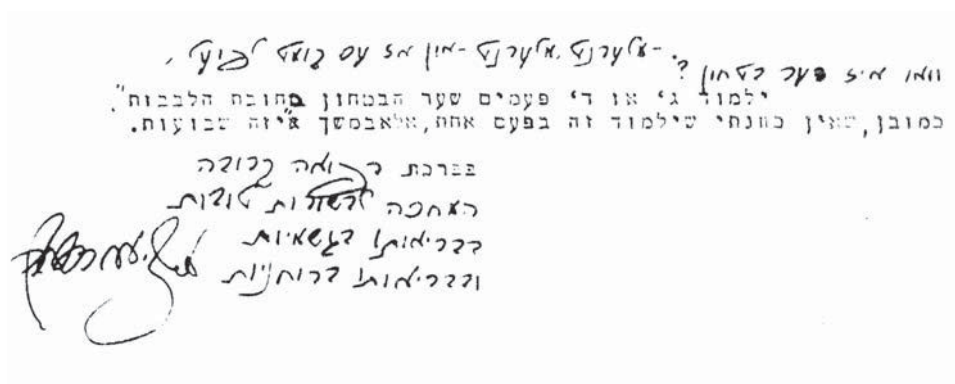 וואו איז דער בטחון?
ילמוד ג' או ד' פעמים שער הבטחון בחובת הלבבות".
כמובן, שאין כוונתי שילמוד זה בפעם אחת, אלא במשך איזה שבועות.
בברכת רפואה קרובה
המחכה לבשורות טובות
בבריאותו בגשמיות
ובבריאותו ברוחניות